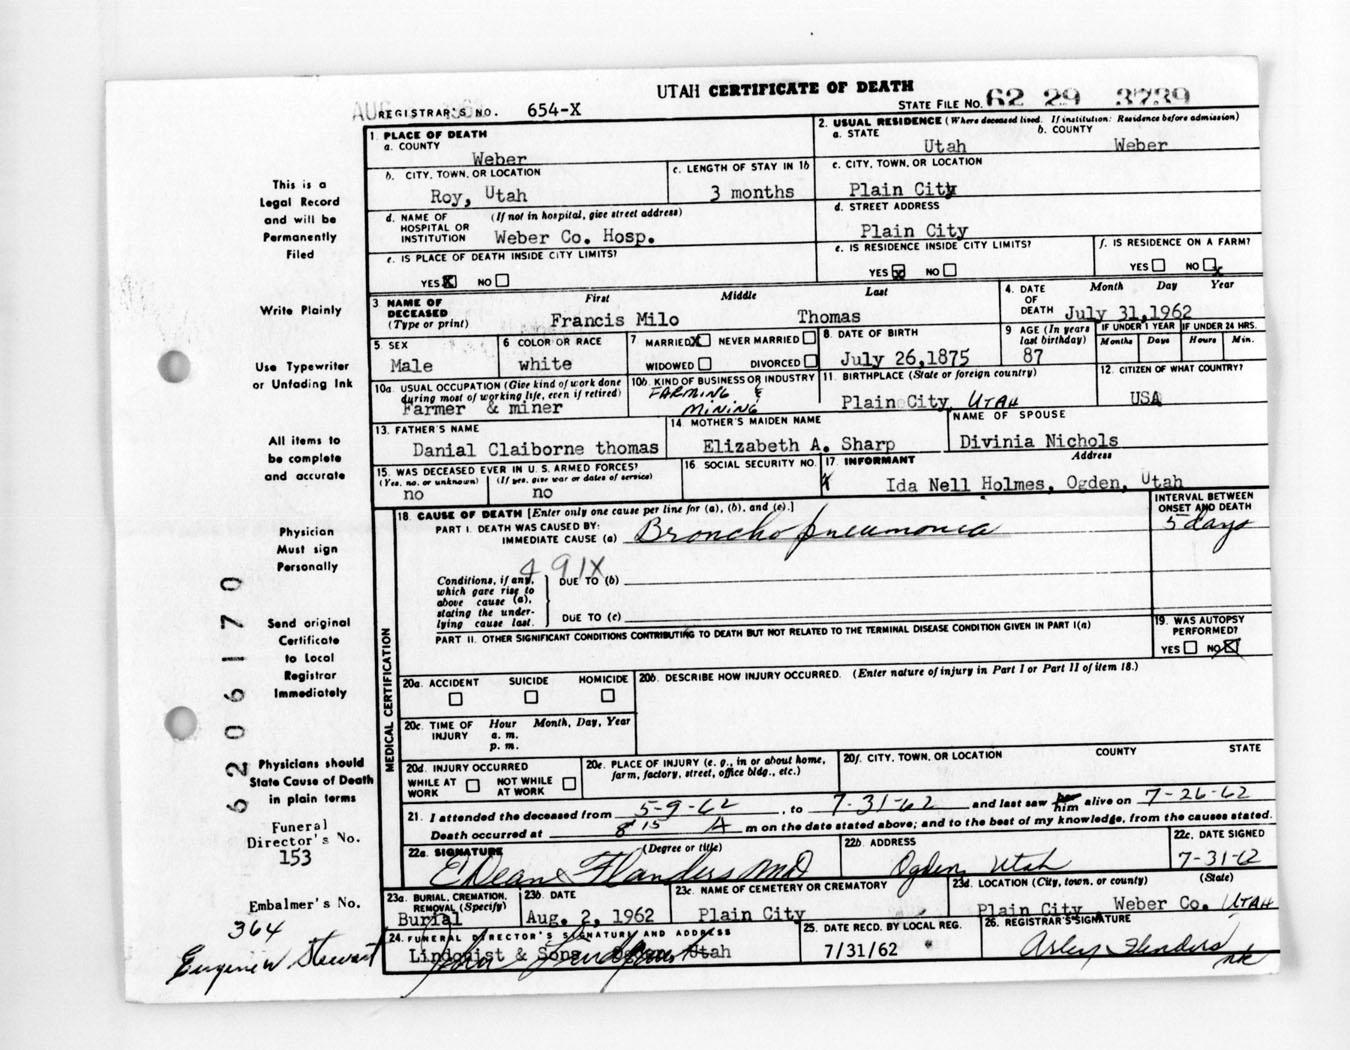 UTAH CERTIFICATE OF DEATH
REGISTRAR'S NO. 654-X
STATE FILE NO. 62 29 3739
1. PLACE OF DEATH
a. COUNTY
Weber
2. USUAL RESIDENCE (Where deceased lived. If institution: Residence before admission)
a. STATE
Utah
b. COUNTY
Weber
b. CITY, TOWN, OR LOCATION
Roy, Utah
c. LENGTH OF STAY IN 1b
3 months
c. CITY, TOWN, OR LOCATION
Plain City
d. NAME OF HOSPITAL OR INSTITUTION (If not in hospital, give street address)
Weber Co. Hosp.
d. STREET ADDRESS
Plain City
e. IS PLACE OF DEATH INSIDE CITY LIMITS?
YES X NO
e. IS RESIDENCE INSIDE CITY LIMITS?
YES X NO
f. IS RESIDENCE ON A FARM?
YES NO X
3 NAME OF DECEASED (Type or print)
First Middle Last
Francis Milo Thomas
4. DATE OF DEATH
Month Day Year
July 31,1962
5. SEX
Male
6 COLOR OR RACE
white
7 MARRIED X NEVER MARRIED
WIDOWED DIVORCED
8. DATE OF BIRTH
July 26,1875
9 AGE (In years last birthday)
87
IF UNDER 1 YEAR
Months Days
IF UNDER 24 HRS.
Hours Min.
10a. USUAL OCCUPATION (Give kind of work done during most of working life, even if retired)
Farmer & miner
10b. KIND OF BUSINESS OR INDUSTRY
FARMING &
MINING
11. BIRTHPLACE (State or foreign country)
Plain City, UTAH
12. CITIZEN OF WHAT COUNTRY?
USA
13. FATHER'S NAME
Danial Claiborne thomas
14. MOTHER'S MAIDEN NAME
Elizabeth A. Sharp
NAME OF SPOUSE
Divinia Nichols
15. WAS DECEASED EVER IN U. S. ARMED FORCES?
(Yes, no, or unknown) (If yes, give war or dates of service)
no no
16. SOCIAL SECURITY NO.
17. INFORMANT Address
Ida Nell Holmes, Ogden, Utah
MEDICAL CERTIFICATION
18. CAUSE OF DEATH [Enter only one cause per line for (a), (b), and (c).]
INTERVAL BETWEEN ONSET AND DEATH
PART I. DEATH WAS CAUSED BY:
IMMEDIATE CAUSE (a) Bronchopneumonia
5 days
491X
Conditions, if any, which gave rise to above cause (a), stating the underlying cause last.
DUE TO (b)
DUE TO (c)
PART II. OTHER SIGNIFICANT CONDITIONS CONTRIBUTING TO DEATH BUT NOT RELATED TO THE TERMINAL DISEASE CONDITION GIVEN IN PART I(a)
19. WAS AUTOPSY PERFORMED?
YES NO X
20a. ACCIDENT SUICIDE HOMICIDE
20b. DESCRIBE HOW INJURY OCCURRED. (Enter nature of injury in Part I or Part II of item 18.)
20c. TIME OF INJURY
Hour Month, Day, Year
a. m.
p. m.
20d. INJURY OCCURRED
WHILE AT WORK NOT WHILE AT WORK
20e. PLACE OF INJURY (e. g., in or about home, farm, factory, street, office bldg., etc.)
20f. CITY, TOWN, OR LOCATION COUNTY STATE
21. I attended the deceased from 5-9-62, to 7-31-62 and last saw him alive on 7-26-62
Death occurred at 8 15 A m on the date stated above; and to the best of my knowledge, from the causes stated.
22a. SIGNATURE (Degree or title)
E Dean Flanders MD
22b. ADDRESS
Ogden, Utah
22c. DATE SIGNED
7-31-62
23a. BURIAL, CREMATION, REMOVAL (Specify)
Burial
23b. DATE
Aug. 2, 1962
23c. NAME OF CEMETERY OR CREMATORY
Plain City
23d. LOCATION (City, town, or county) (State)
Plain City Weber Co. UTAH
24. FUNERAL DIRECTOR'S SIGNATURE AND ADDRESS
Lindquist & Sons Ogden, Utah
25. DATE RECD. BY LOCAL REG.
7/31/62
26. REGISTRAR'S SIGNATURE
Arley Flinders
This is a
Legal Record
and will be
Permanently
Filed
Write Plainly
Use Typewriter
or Unfading Ink
All items to
be complete
and accurate
Physician
Must sign
Personally
Send original
Certificate
to Local
Registrar
Immediately
Physicians should
State Cause of Death
in plain terms
Funeral
Director's No.
153
Embalmer's No.
364
Eugene W Stewart
62 06170